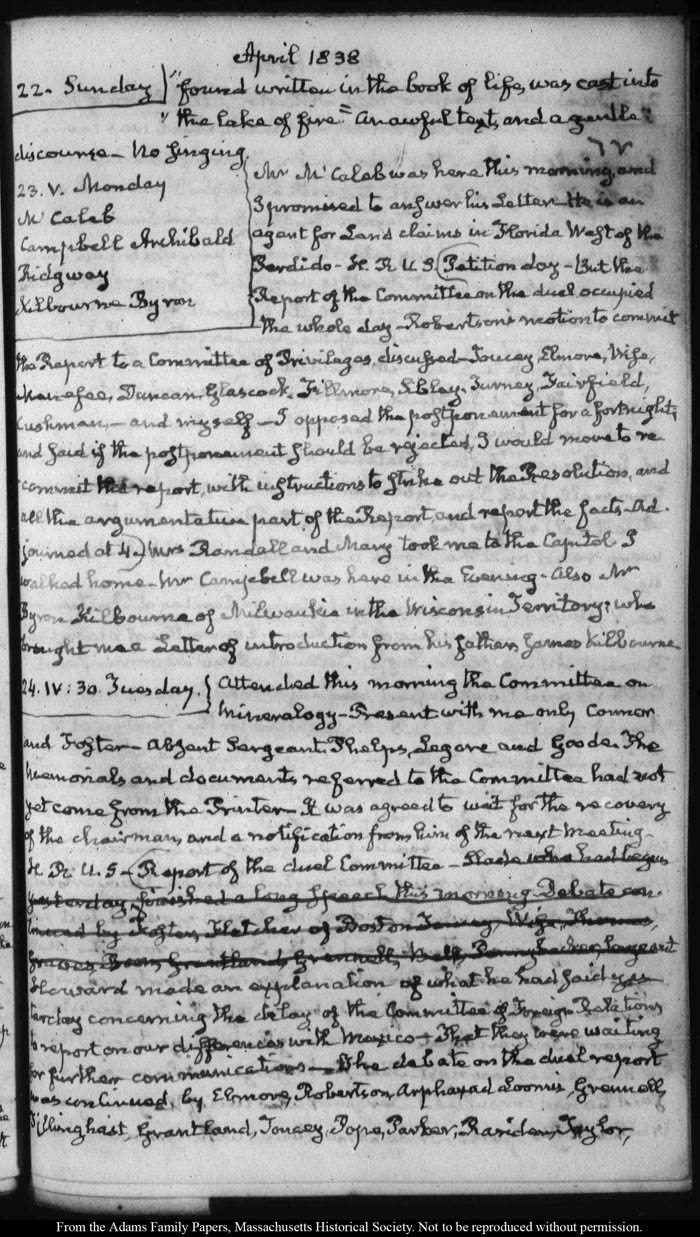 April 1838
22. Sunday "found written in the book of life, was cast into
" the lake of fire." An awful text, and a gentle
discourse - No singing.
IV
23. V. Monday
McCaleb
Campbell Archibald
Ridgway
Kilbourne Byron
Mr McCaleb was here this morning, and
I promised to answer his Letter. He is an
agent for Land claims in Florida West of the
Perdido - H. R. U. S. Petition day - But the
Report of the Committee on the duel occupied
the whole day - Robertson's motion to commit
the Report to a Committee of Privileges, discussed - Toucey, Elmore, Wise,
Menefee, Duncan, Glascock, Fillmore, Sibley, Turney, Fairfield,
Cushman, - and myself - I opposed the postponement for a fortnight,
and said if the postponement should be rejected, I would move to re
commit the report, with instructions to strike out the Resolution, and
all the argumentative part of the Report, and report the facts - Ad.
journed at 4. Mrs Randall and Mary took me to the Capitol I
walked home - Mr Campbell was here in the Evening - Also Mr
Byron Kilbourne of Milwaukie in the Wisconsin Territory; who
brought me a Letter of introduction from his father, James Kilbourne
24. IV: 30. Tuesday. Attended this morning the Committee on
Mineralogy - Present with me only Connor
and Foster - Absent Sergeant, Phelps, Legare and Goode. The
Memorials and documents referred to the Committee had not
yet come from the Printer - It was agreed to wait for the recovery
of the chairman, and a notification from him of the next Meeting -
H. R. U. S - Report of the duel Committee - Slade who had begun
yesterday, finished a long speech this morning. Debate con
tinued by Foster, Fletcher of Boston Toucey, Wise, Thomas,
Graves, Boon, Grantland, Grennell, Bell, Pennybacker, Sergeant
Howard made an explanation of what he had said yes
terday concerning the delay of the Committee of Foreign Relations
to report on our differences with Mexico - That they were waiting
for further communications - The debate on the duel report
was continued, by Elmore, Robertson, Arphaxad Loomis, Grennell,
Tillinghast, Grantland, Toucey, Pope, Parker, Rariden, Taylor,
From the Adams Family Papers, Massachusetts Historical Society. Not to be reproduced without permission.